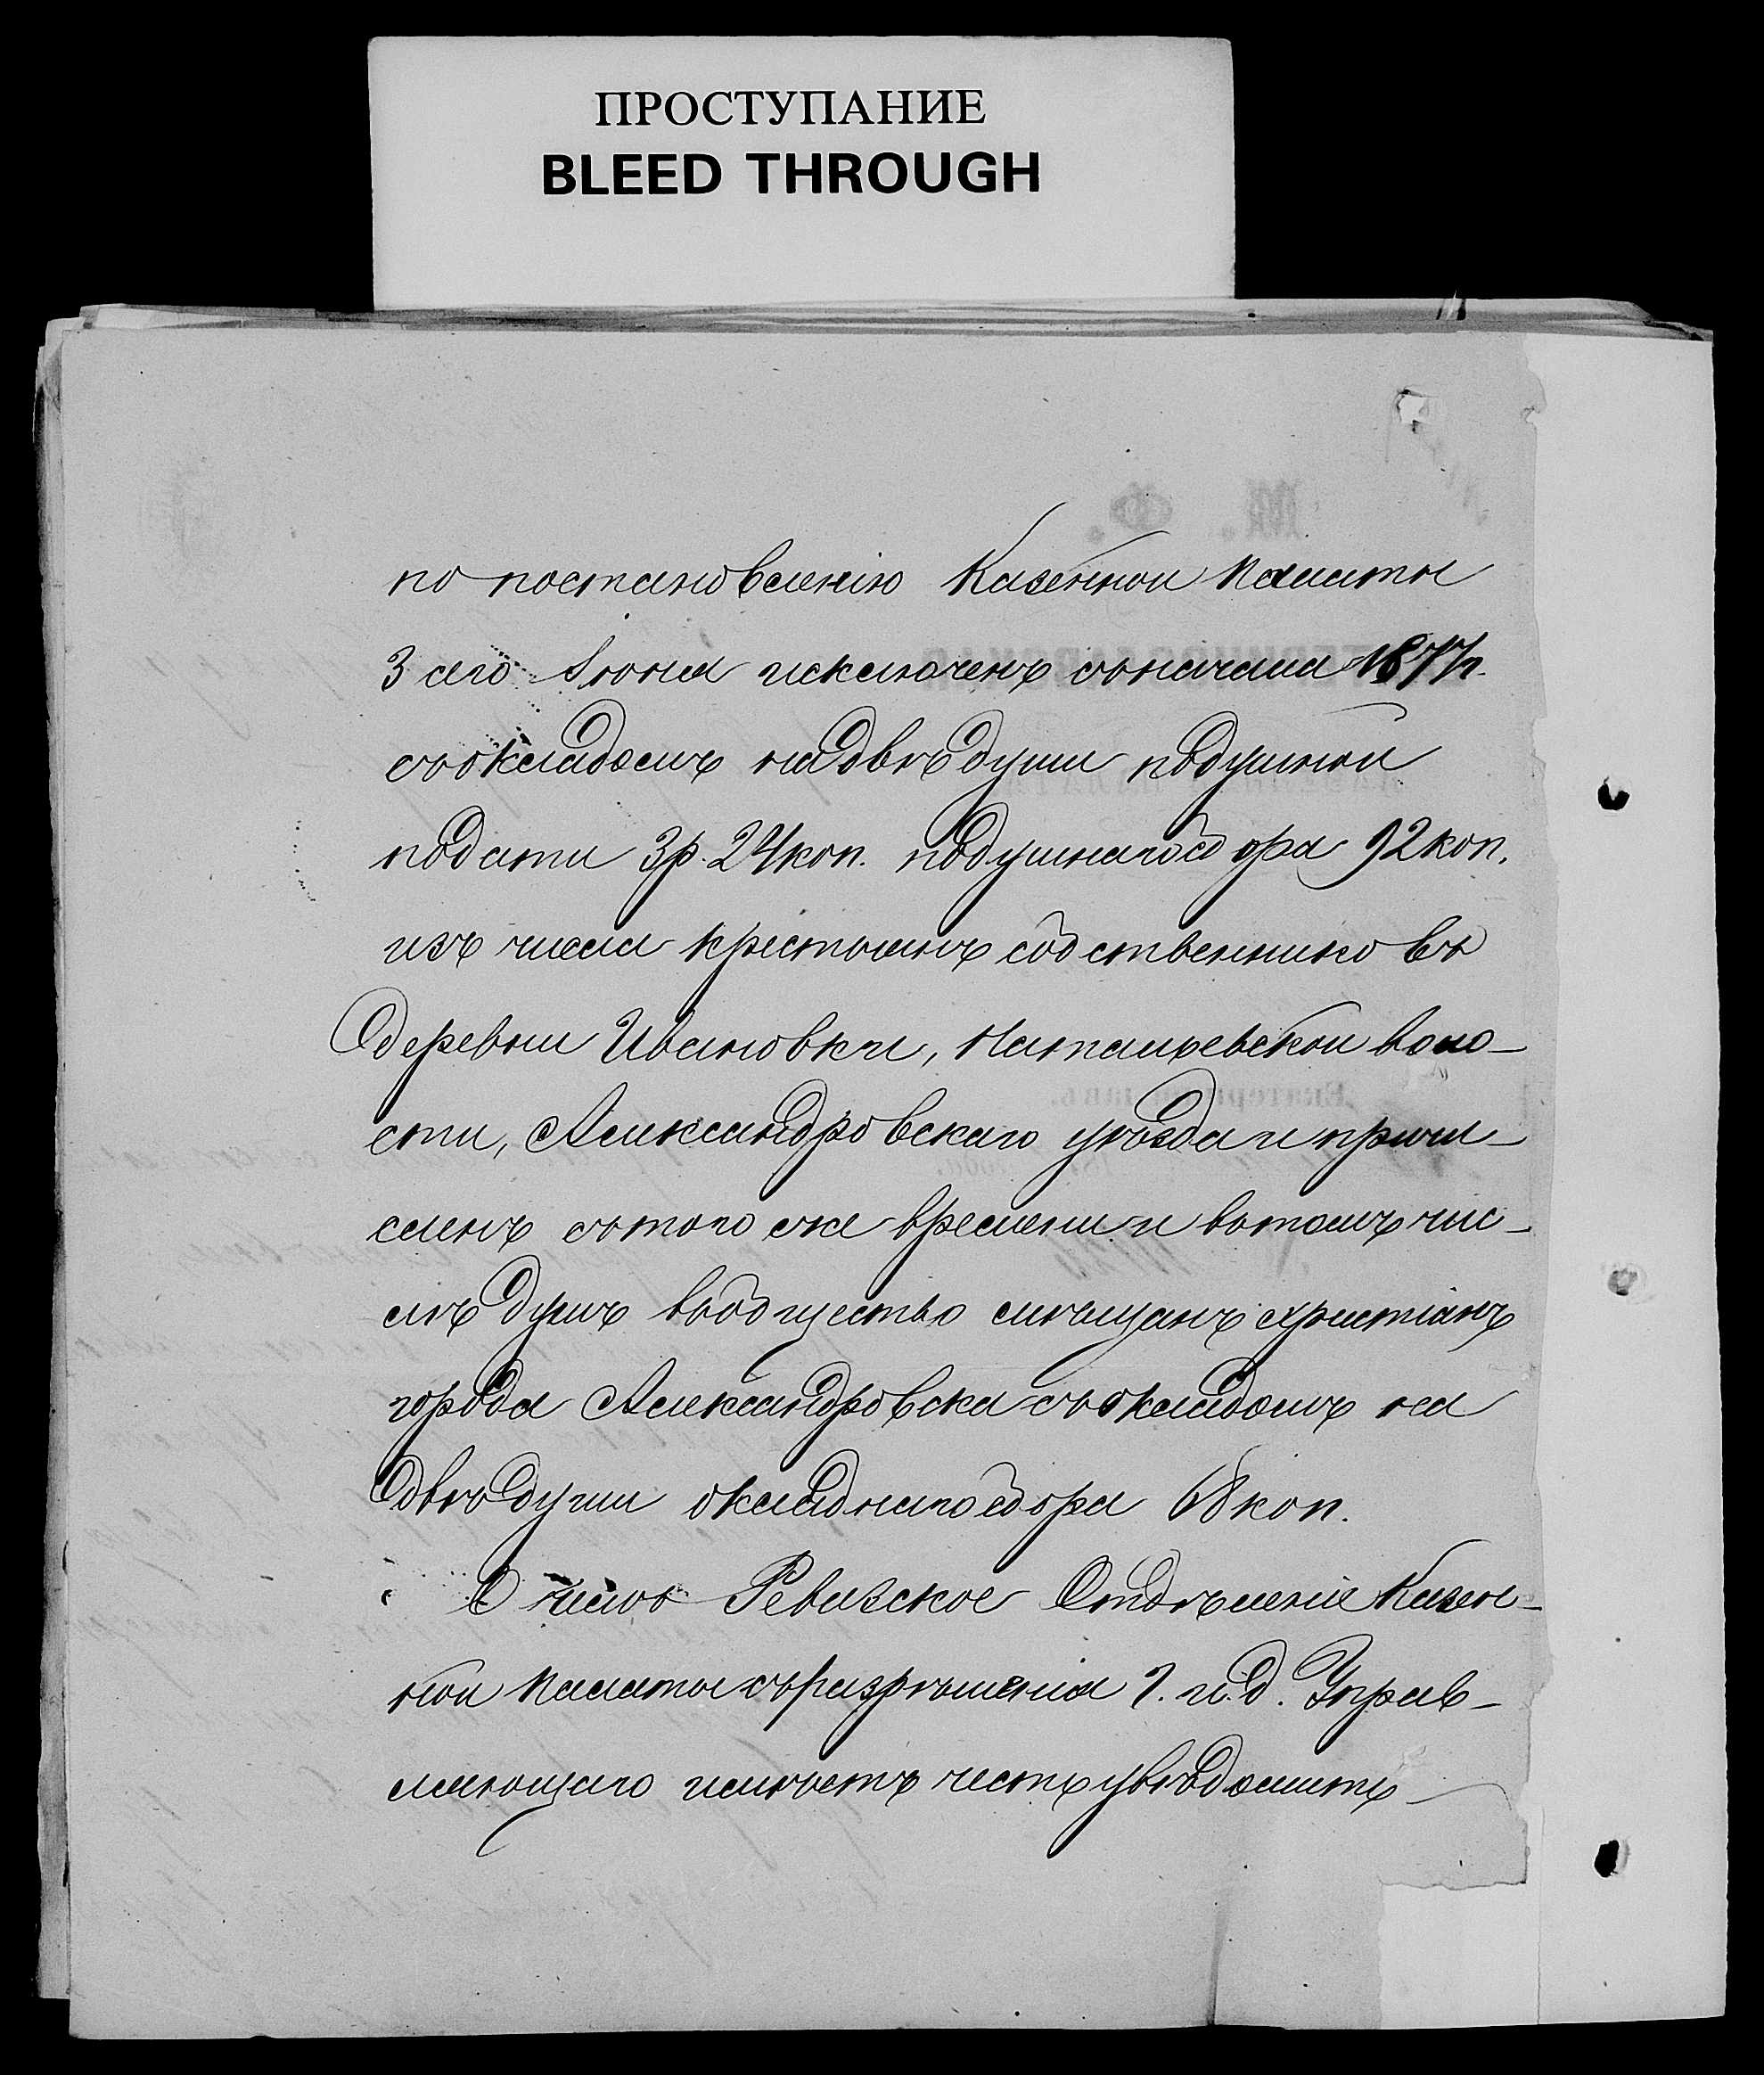 ПРОСТУПАНИЕ
BLEED THROUGH
по постановленію Казенной Палаты
3 сего Іюня исключенъ съ начала 1877 г.
съ окладомъ на двѣ души подушной
подати 3 р. 24 коп. подушнаго сбора 92 коп.
изъ числа крестьянъ собственниковъ
деревни Ивановки, Натальевской воло-
сти, Александровскаго уѣзда и причи-
сленъ съ того же времени и въ томъ чис-
лѣ душъ въ общество мѣщанъ христіанъ
города Александровска съ окладомъ на
двѣ души окладнаго сбора 68 коп.
О чемъ Ревизское Отдѣленіе Казен-
ной Палаты съ разрѣшенія Г. и. д. Управ-
ляющаго имѣетъ честь увѣдомить